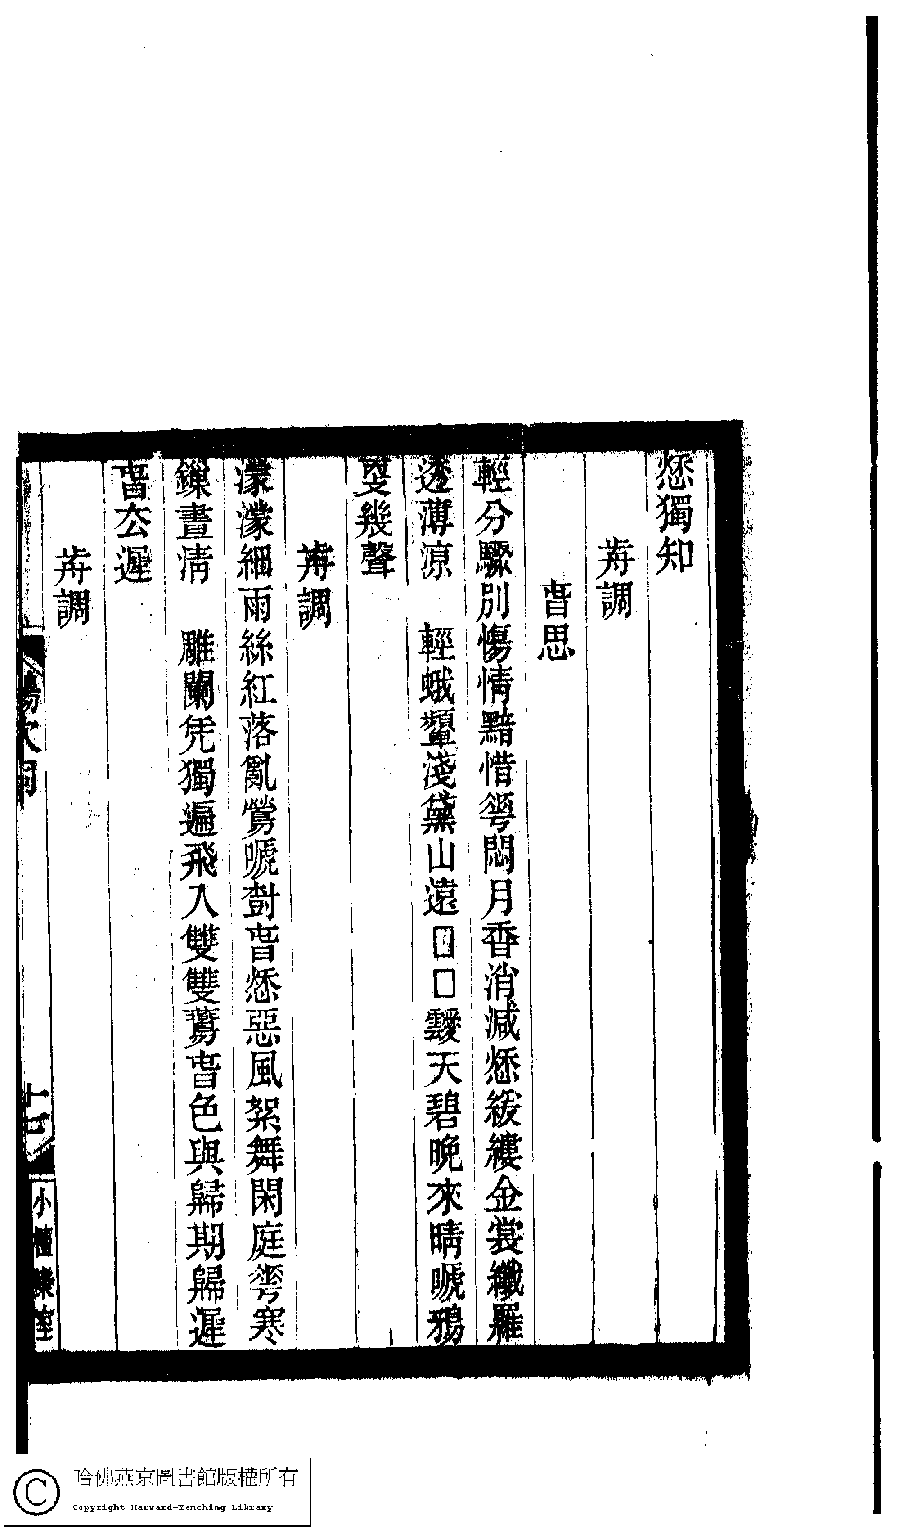 愁獨知
歬調
旾思
輕分驟別傷情黯惜華悶月香消減愁緩縷金裳纖羅
透薄涼　輕蛾顰淺黛山遠□□靉天碧晚來晴嗁鴉
幾聲
歬調
濛濛細雨絲紅落亂鶯嗁對旾愁惡風絮舞閑庭華寒
鏁晝淸　雕闌凭獨遍飛入雙雙燕旾色與歸期歸遲
旾去遲
歬調
十七
小檀欒室
哈佛燕京圖書館版權所有
Copyright Harvard-Yenching Library